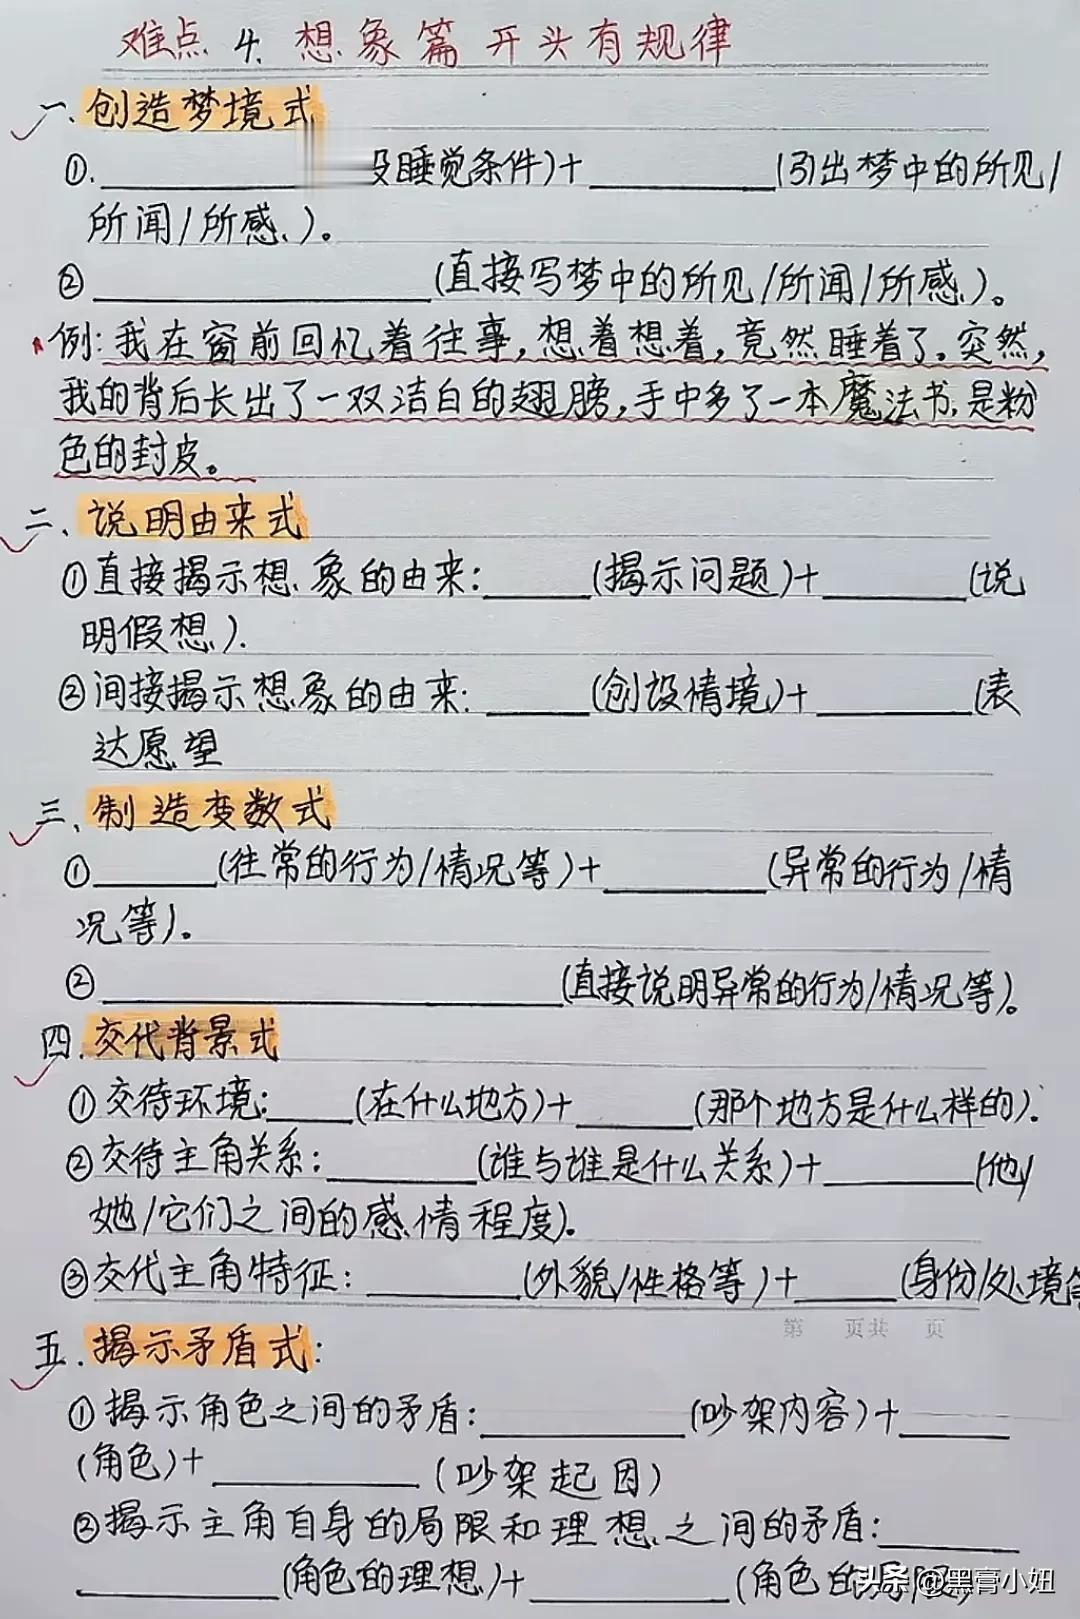 难点 4. 想象篇 开头有规律
一、创造梦境式
①.__________设睡觉条件)+__________(引出梦中的所见/
所闻/所感)。
②__________(直接写梦中的所见/所闻/所感)。
例:我在窗前回忆着往事,想着想着,竟然睡着了。突然,
我的背后长出了一双洁白的翅膀,手中多了一本魔法书,是粉
色的封皮。
二、说明由来式
①直接揭示想象的由来:______(揭示问题)+______(说
明假想).
②间接揭示想象的由来:______(创设情境)+______(表
达愿望
三、制造变数式
①______(往常的行为/情况等)+______(异常的行为/情
况等)。
②__________(直接说明异常的行为/情况等)。
四.交代背景式
①交待环境:____(在什么地方)+____(那个地方是什么样的).
②交待主角关系:______(谁与谁是什么关系)+______(他/
她/它们之间的感情程度)。
③交代主角特征:______(外貌/性格等)+____(身份/处境
第 页共 页
五.揭示矛盾式:
①揭示角色之间的矛盾:________(吵架内容)+____
(角色)+________(吵架起因)
②揭示主角自身的局限和理想之间的矛盾:______
______(角色的理想)+________(角色的局限)
头条@黑膏小妞